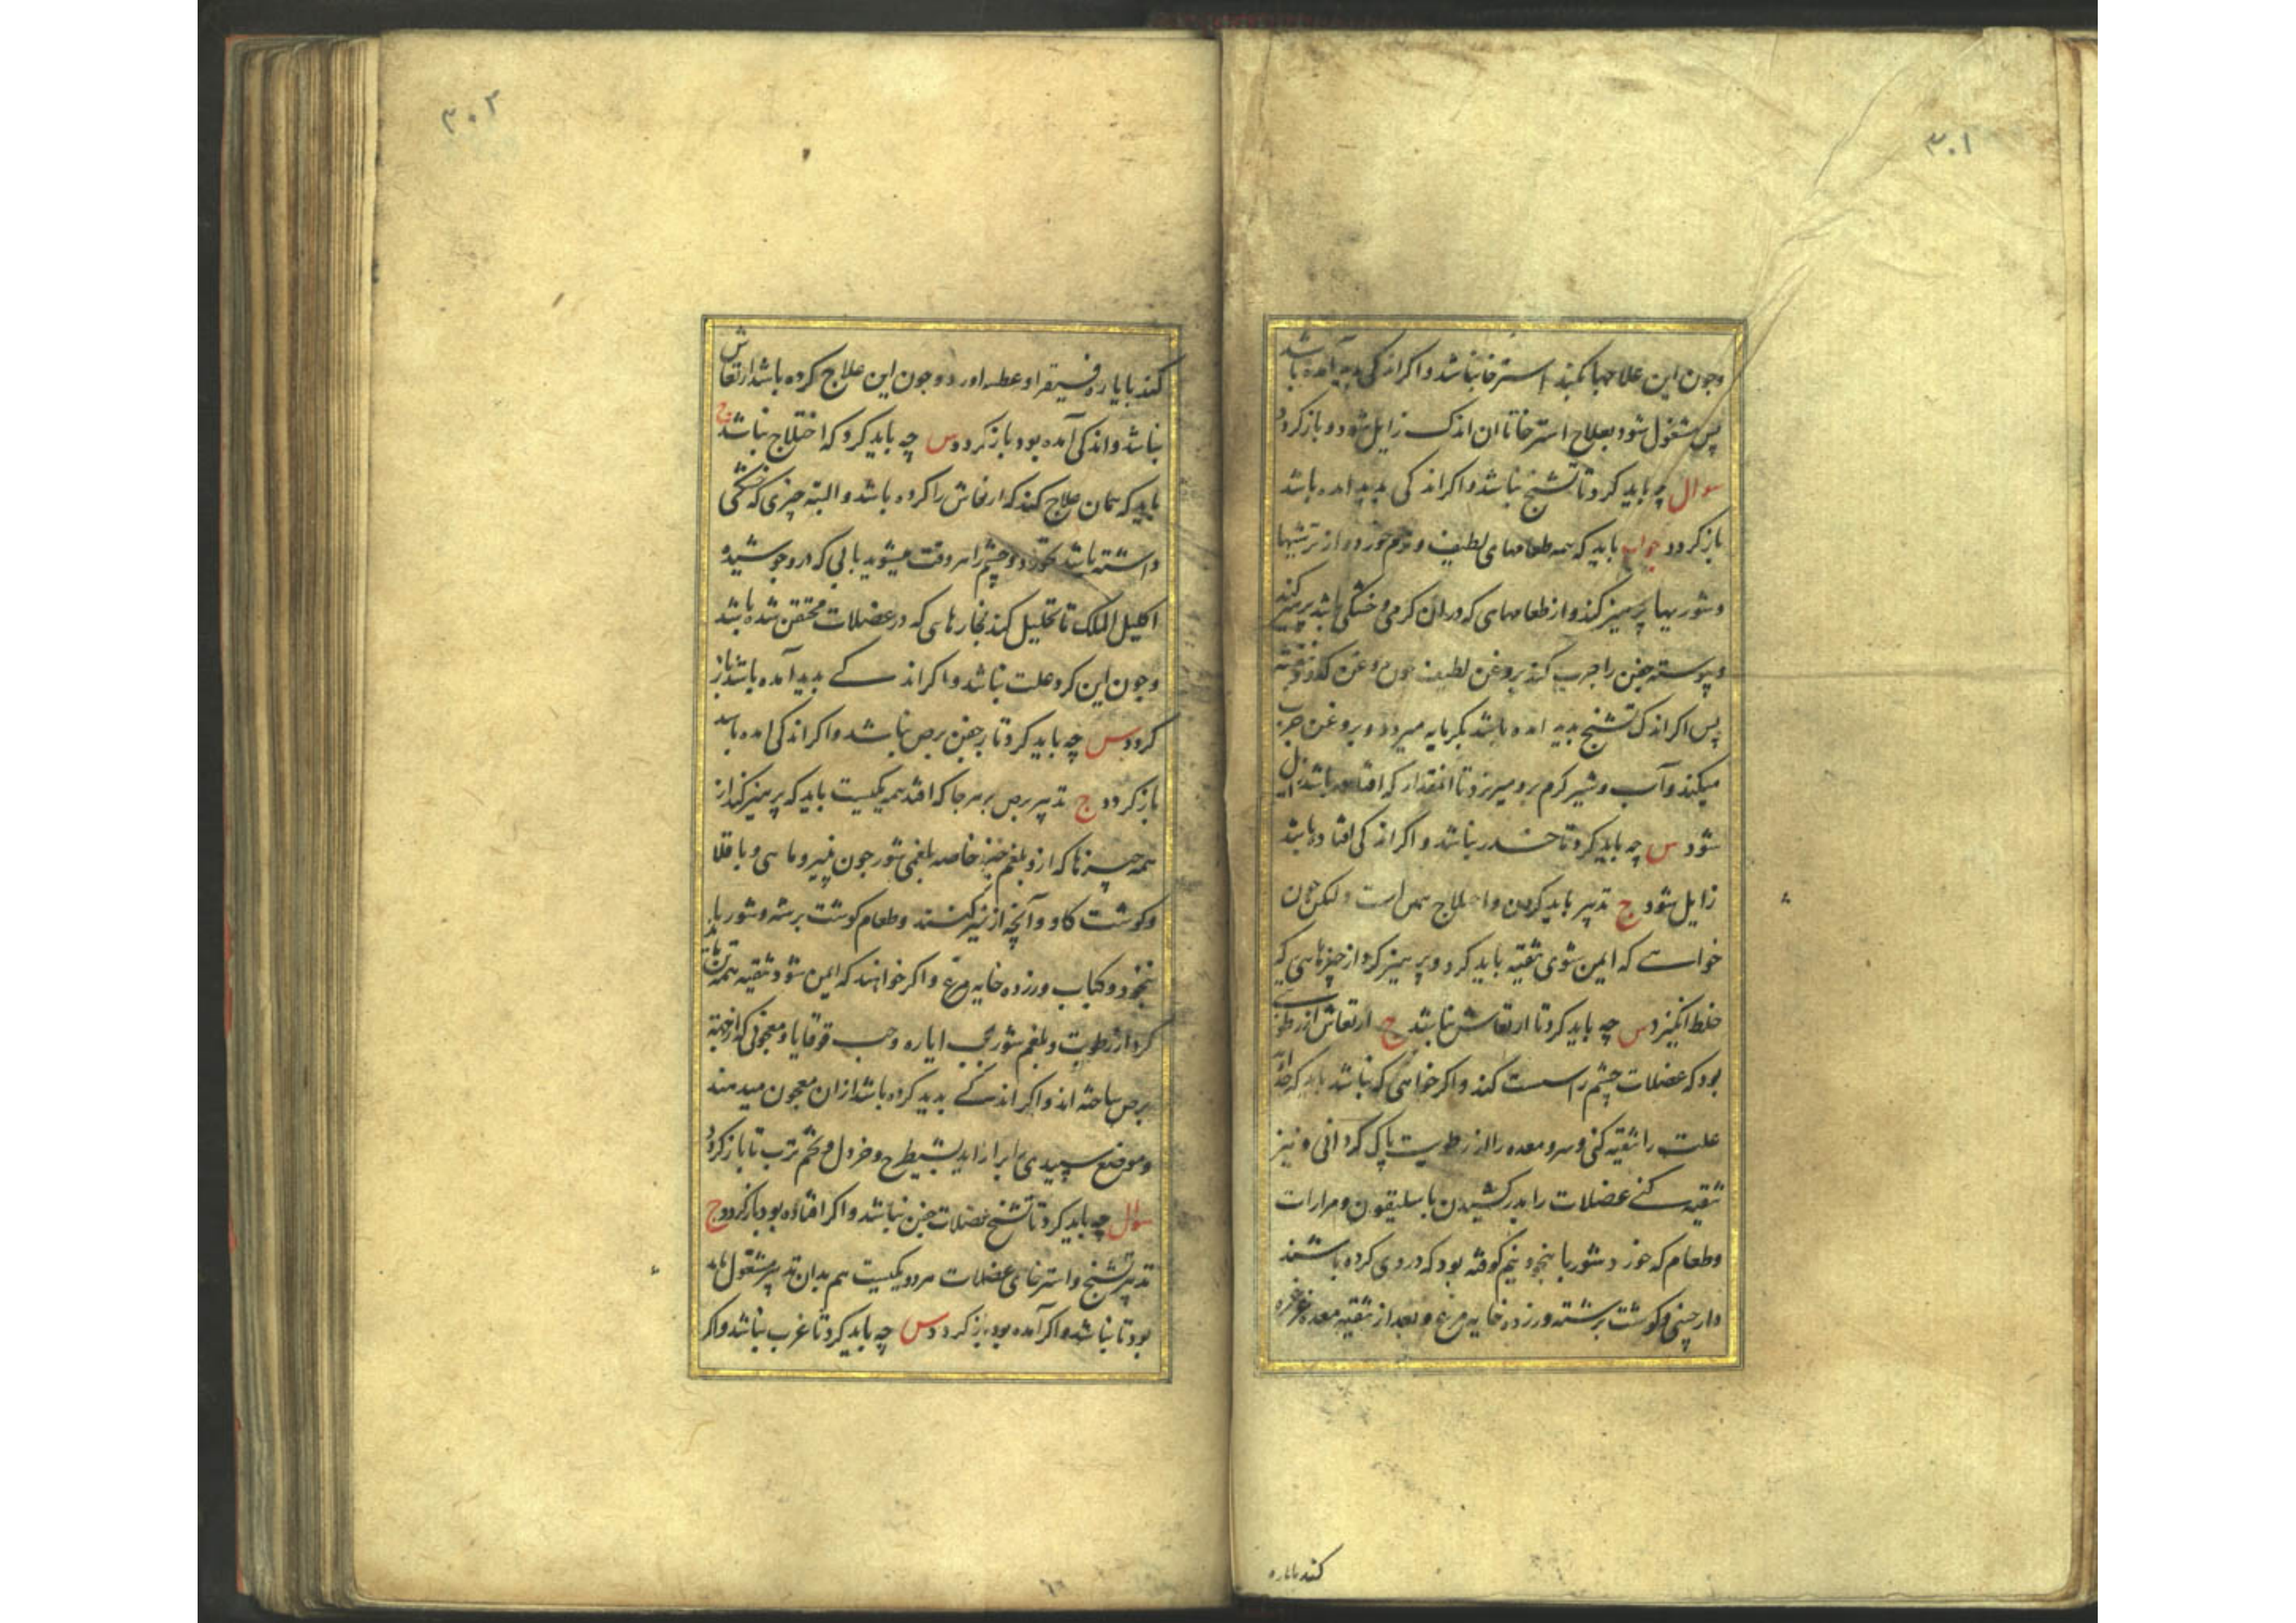 ۳۰۱
وجون این علاجها بکند استرخا نباشد واکر اندکی پدید آمده باشد
پس مشغول شود بعلاج استرخا تا ان اندک زایل شود و باز کردد
سوال چه باید کرد تا تشنج نباشد واکر اندکی پدید امده باشد
باز کردد جواب باید که همه طعامهای لطیف ونرم خورد واز ترشیها
وشوریها پرهیز کند واز طعامهای که دران کرمی وخشکی باشد پرهیز کند
وپیوسته جفن را چرب کند بروغن لطیف چون روغن کدو وبنفشه
پس اکر اندک تشنج پدید امده باشد بکرمابه میرود وبروغن چرب
میکند وآب وشیر کرم برو میریزد تا آنمقدار که افتاده باشد زایل
شود س چه باید کرد تا خدر نباشد واکر اندکی افتاده باشد
زایل شود ج تدبیر باید کردن واختلاج همین است ولکن چون
خواسے که ایمن شوی تنقیه باید کرد وپرهیز کرد از چیزهایی که
خلط انکیزد س چه باید کرد تا ارتعاش نباشد ج ارتعاش از رطوبتے
بود که عضلات چشم را سست کند واکر خواهی که نباشد باید که خداوند
علت را تنقیه کنی وسر ومعده را از رطوبت پاک کردانی ونیز
تنقیه کنے عضلات را بدرکشیدن باسلیقون ومرارات
وطعام که خورد شوربا بنخود نیم کوفته بود که در وی کرده باشند
دارچینی وکوشت برشته وزرده خایه مرغ وبعد از تنقیه معده غرغره
کند بایاره
۳۰۲
کند بایاره فیقرا وعطسه اورد وجون این علاج کرده باشد ارتعاش
نباشد واندکی آمده بود باز کردد س چه باید کرد که اختلاج نباشد ج
باید که همان علاج کند که ارتعاش را کرده باشد والبته چیزی که خشکی
داشته باشد نخورد وچشم را هر وقت میشوید بابی که درو جوشیده
اکلیل الملک تا تحلیل کند بخارهایی که در عضلات محتقن شده باشد
وجون این کرد علت نباشد واکر اندکے پدید آمده باشد باز
کردد س چه باید کرد تا بر جفن برص نباشد واکر اندکی امده باشد
باز کردد ج تدبیر برص بر هر جا که افتد همه یکیست باید که پرهیز کند از
همه چیزها که ازو بلغم خیزد خاصه بلغمی شور جون پنیر وماهی وباقلا
وکوشت کاو وآنچه از شیر کنند وطعام کوشت برشته وشوربا
بنخود وکباب وزرده خایه مرغ واکر خواهند که ایمن شود تنقیه همه تن باید
کرد از رطوبت وبلغم شور بحب ایاره وحب قوقایا ومعجونی که از جهته
برص ساخته اند واکر اندکے پدید کرده باشد ازان معجون میدهند
وموضع سپیدی را شیطرج وخردل وتخم ترب تا باز کردد
سوال چه باید کرد تا تشنج عضلات جفن نباشد واکر افتاده بود باز کردد ج
تدبیر تشنج واسترخای عضلات هر دو یکیست هم بدان تدبیر مشغول باید
بود تا نباشد واکر آمده بود باز کردد س چه باید کرد تا غرب نباشد واکر